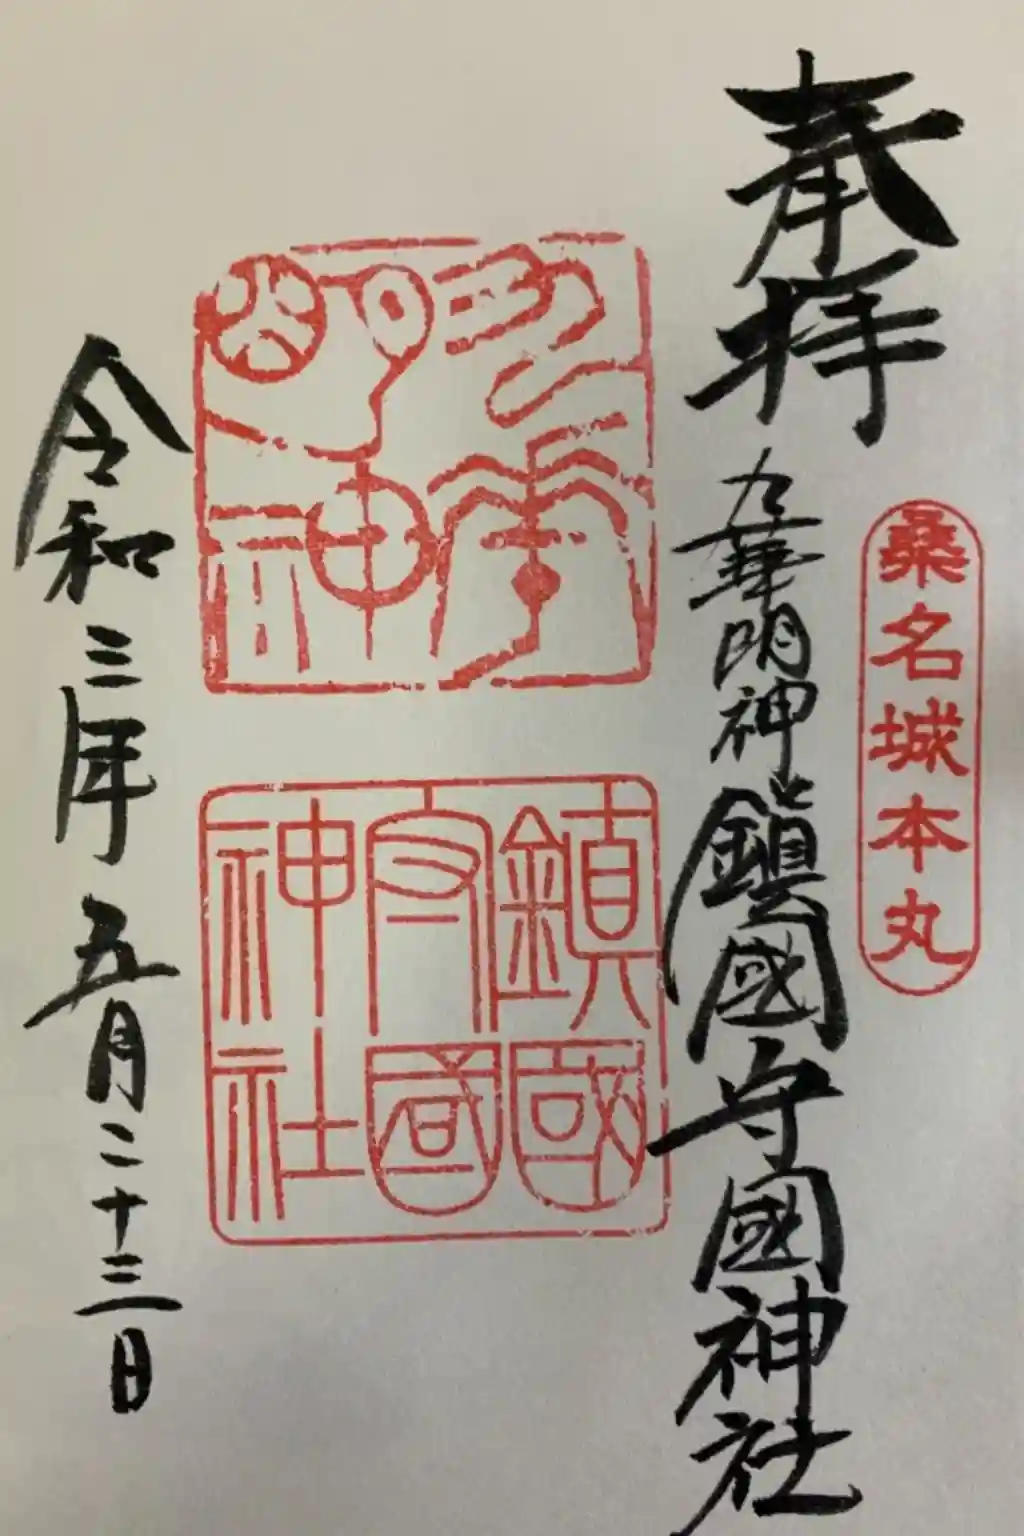 奉拝
桑名城本丸
九華明神
鎮國守國神社
九華明神
鎮國守國神社
令和三年五月二十三日